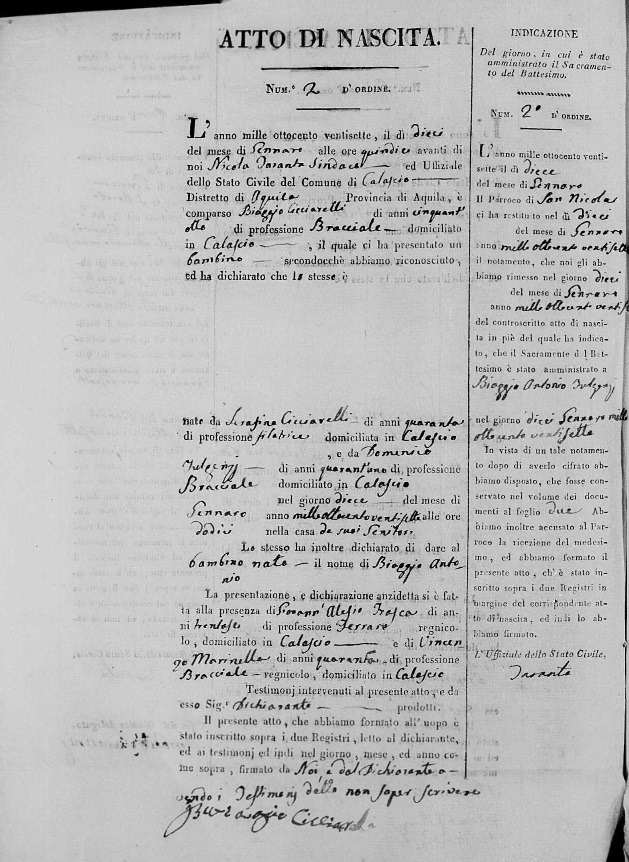 ATTO DI NASCITA.
Num.º 2 D'ORDINE.
L'anno mille ottocento ventisette, il dì dieci
del mese di Gennaro alle ore quindici avanti di
noi Nicola Taranta Sindaco ed Uffiziale
dello Stato Civile del Comune di Calascio
Distretto di Aquila Provincia di Aquila, è
comparso Biaggio Cicciarelli di anni cinquant
otto di professione Bracciale domiciliato
in Calascio, il quale ci ha presentato un
bambino secondocchè abbiamo riconosciuto,
ed ha dichiarato che lo stesso è
nato da Serafina Cicciarelli di anni quaranta
di professione filatrice domiciliata in Calascio
, e da Domenico
Fulgenzj di anni quarant'uno di professione
Bracciale domiciliato in Calascio
nel giorno diece del mese di
Gennaro anno mille ottocento ventisette alle ore
dodici nella casa de suoi Genitori
Lo stesso ha inoltre dichiarato di dare al
bambino nato il nome di Biaggio Anto-
nio
La presentazione, e dichiarazione anzidetta si è fat-
ta alla presenza di Giovann'Alesio Frasca di an-
ni trentasei di professione Ferraro regnico-
lo, domiciliato in Calascio e di Vincen
zo Marinella di anni quaranta di professione
Bracciale regnicolo, domiciliato in Calascio
Testimonj intervenuti al presente atto, e da
esso Sig.r Dichiarante prodotti.
Il presente atto, che abbiamo formato all'uopo è
stato inscritto sopra i due Registri, letto al dichiarante,
ed ai testimonj ed indi nel giorno, mese, ed anno co-
me sopra, firmato da Noi e dal Dichiarante a-
vendo i Testimonj detto non saper scrivere
INDICAZIONE
Del giorno, in cui è stato
amministrato il Sacramen-
to del Battesimo.
Num. 2º D'ORDINE.
L'anno mille ottocento venti-
sette il dì diece
del mese di Gennaro
Il Parroco di San Nicola
ci ha restituito nel dì dieci
del mese di Gennaro
anno mille ottocento ventisette
il notamento, che noi gli ab-
biamo rimesso nel giorno dieci
del mese di Gennaro
anno mille ottocento ventisette
del controscritto atto di nasci-
ta in piè del quale ha indica-
to, che il Sacramento d l Bat-
tesimo è stato amministrato a
Biaggio Antonio Fulgenzj
nel giorno dieci Gennaro mille
ottocento ventisette
In vista di un tale notamento
dopo di averlo cifrato abbiamo
disposto, che fosse con-
servato nel volume dei docu-
menti al foglio due Ab-
biamo inoltre accusato al Par-
roco la ricezione del medesi-
mo, ed abbiamo formato il
presente atto, ch'è stato in-
scritto sopra i due Registri in
margine del corrispondente at-
to di nascita, ed indi lo ab-
biamo firmato.
L'Uffiziale dello Stato Civile,
Taranta